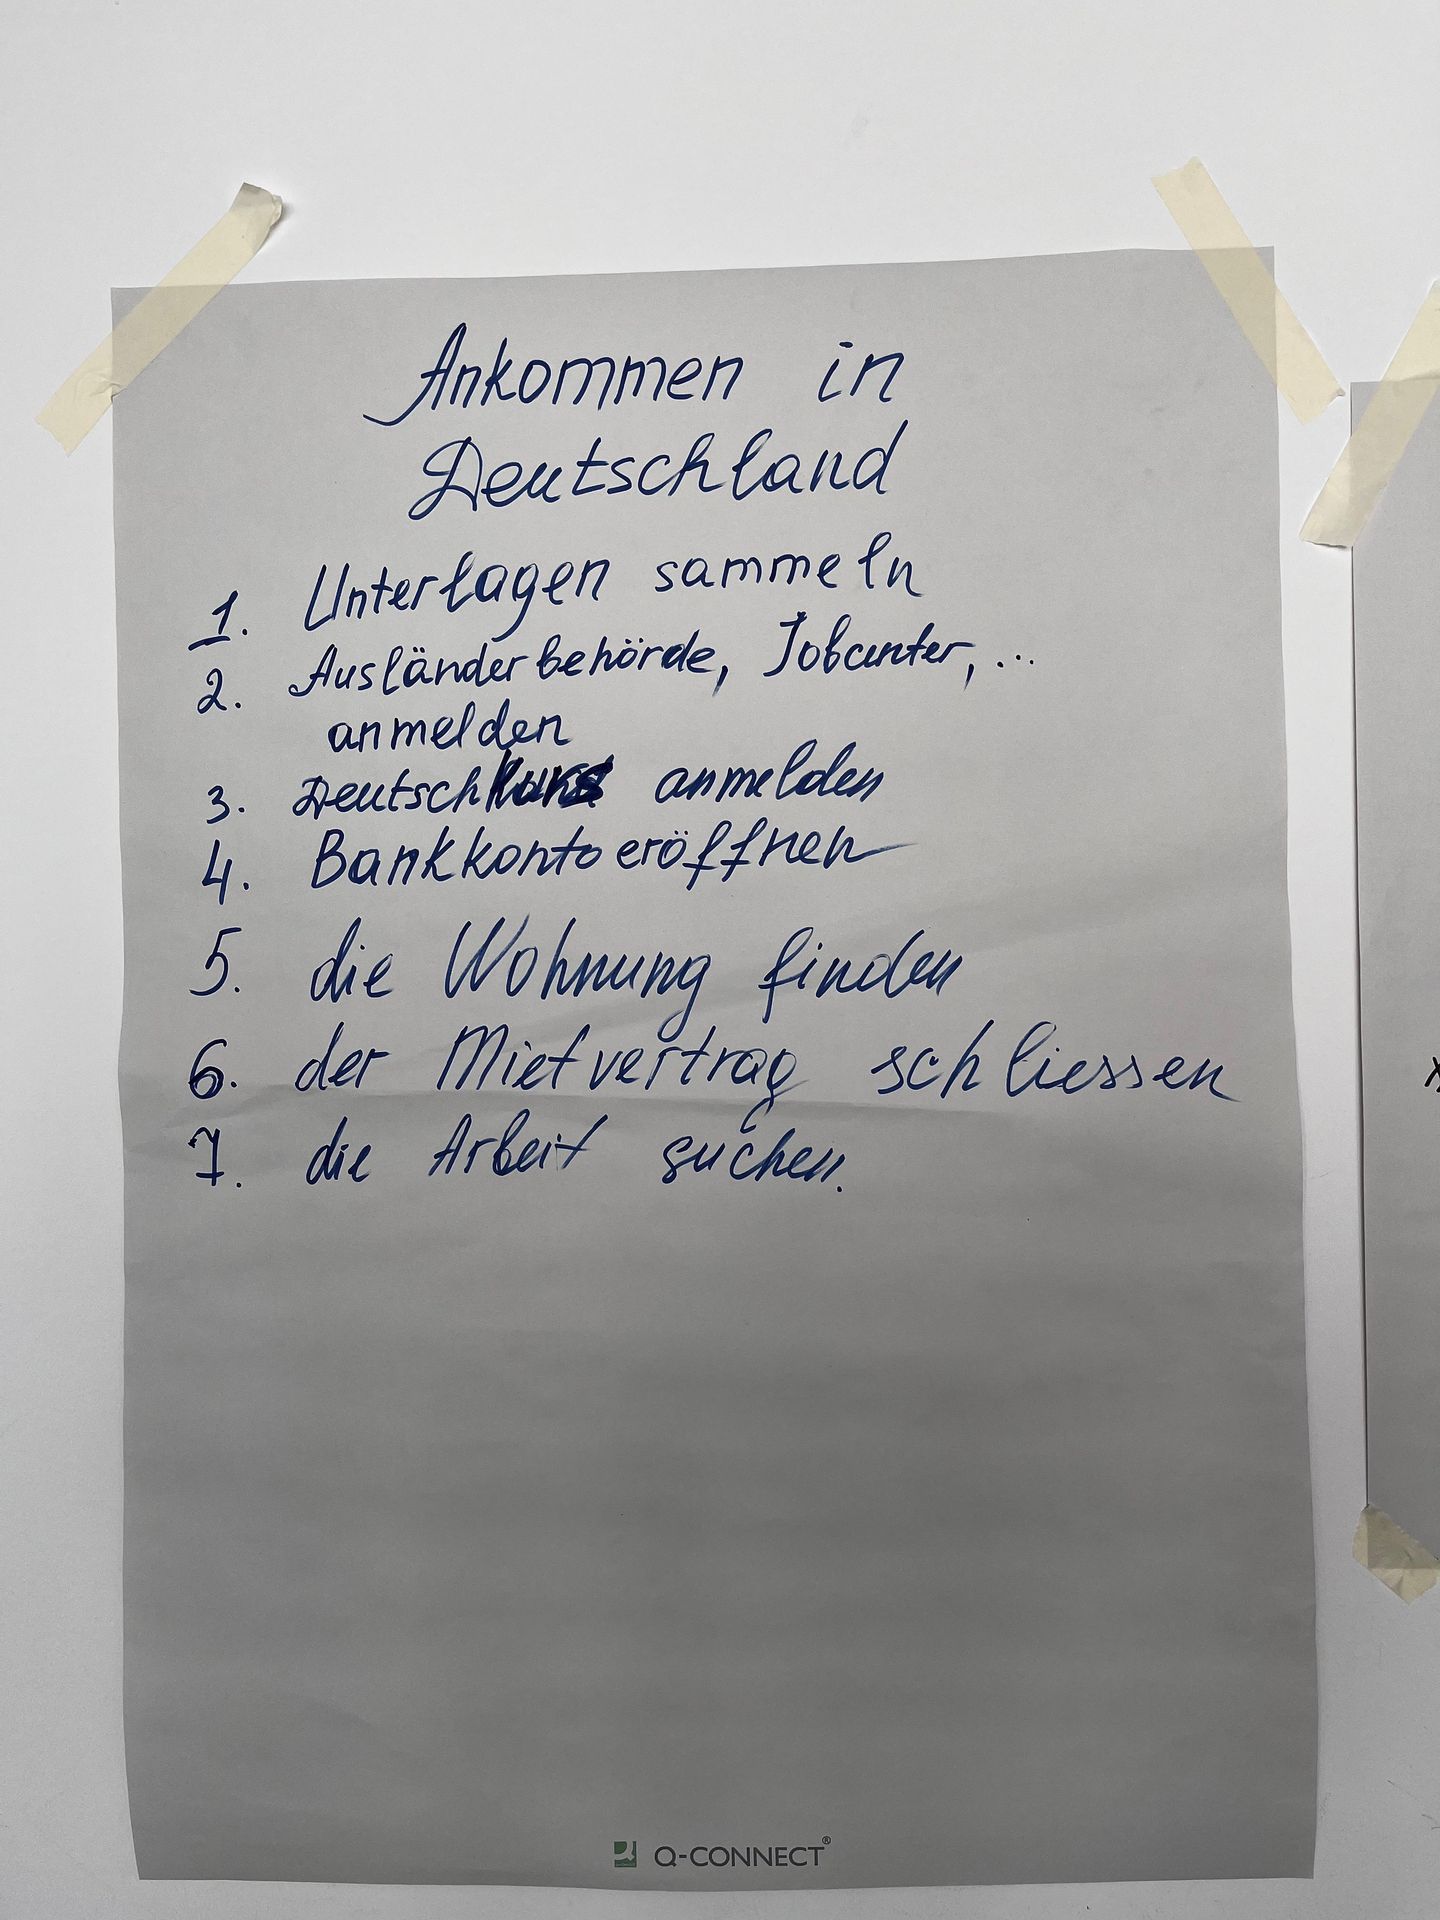 Ankommen in
Deutschland
1. Unterlagen sammeln
2. Ausländerbehörde, Jobcenter, ...
anmelden
3. Deutschkurs anmelden
4. Bankkonto eröffnen
5. die Wohnung finden
6. der Mietvertrag schliessen
7. die Arbeit suchen.
Q-CONNECT®